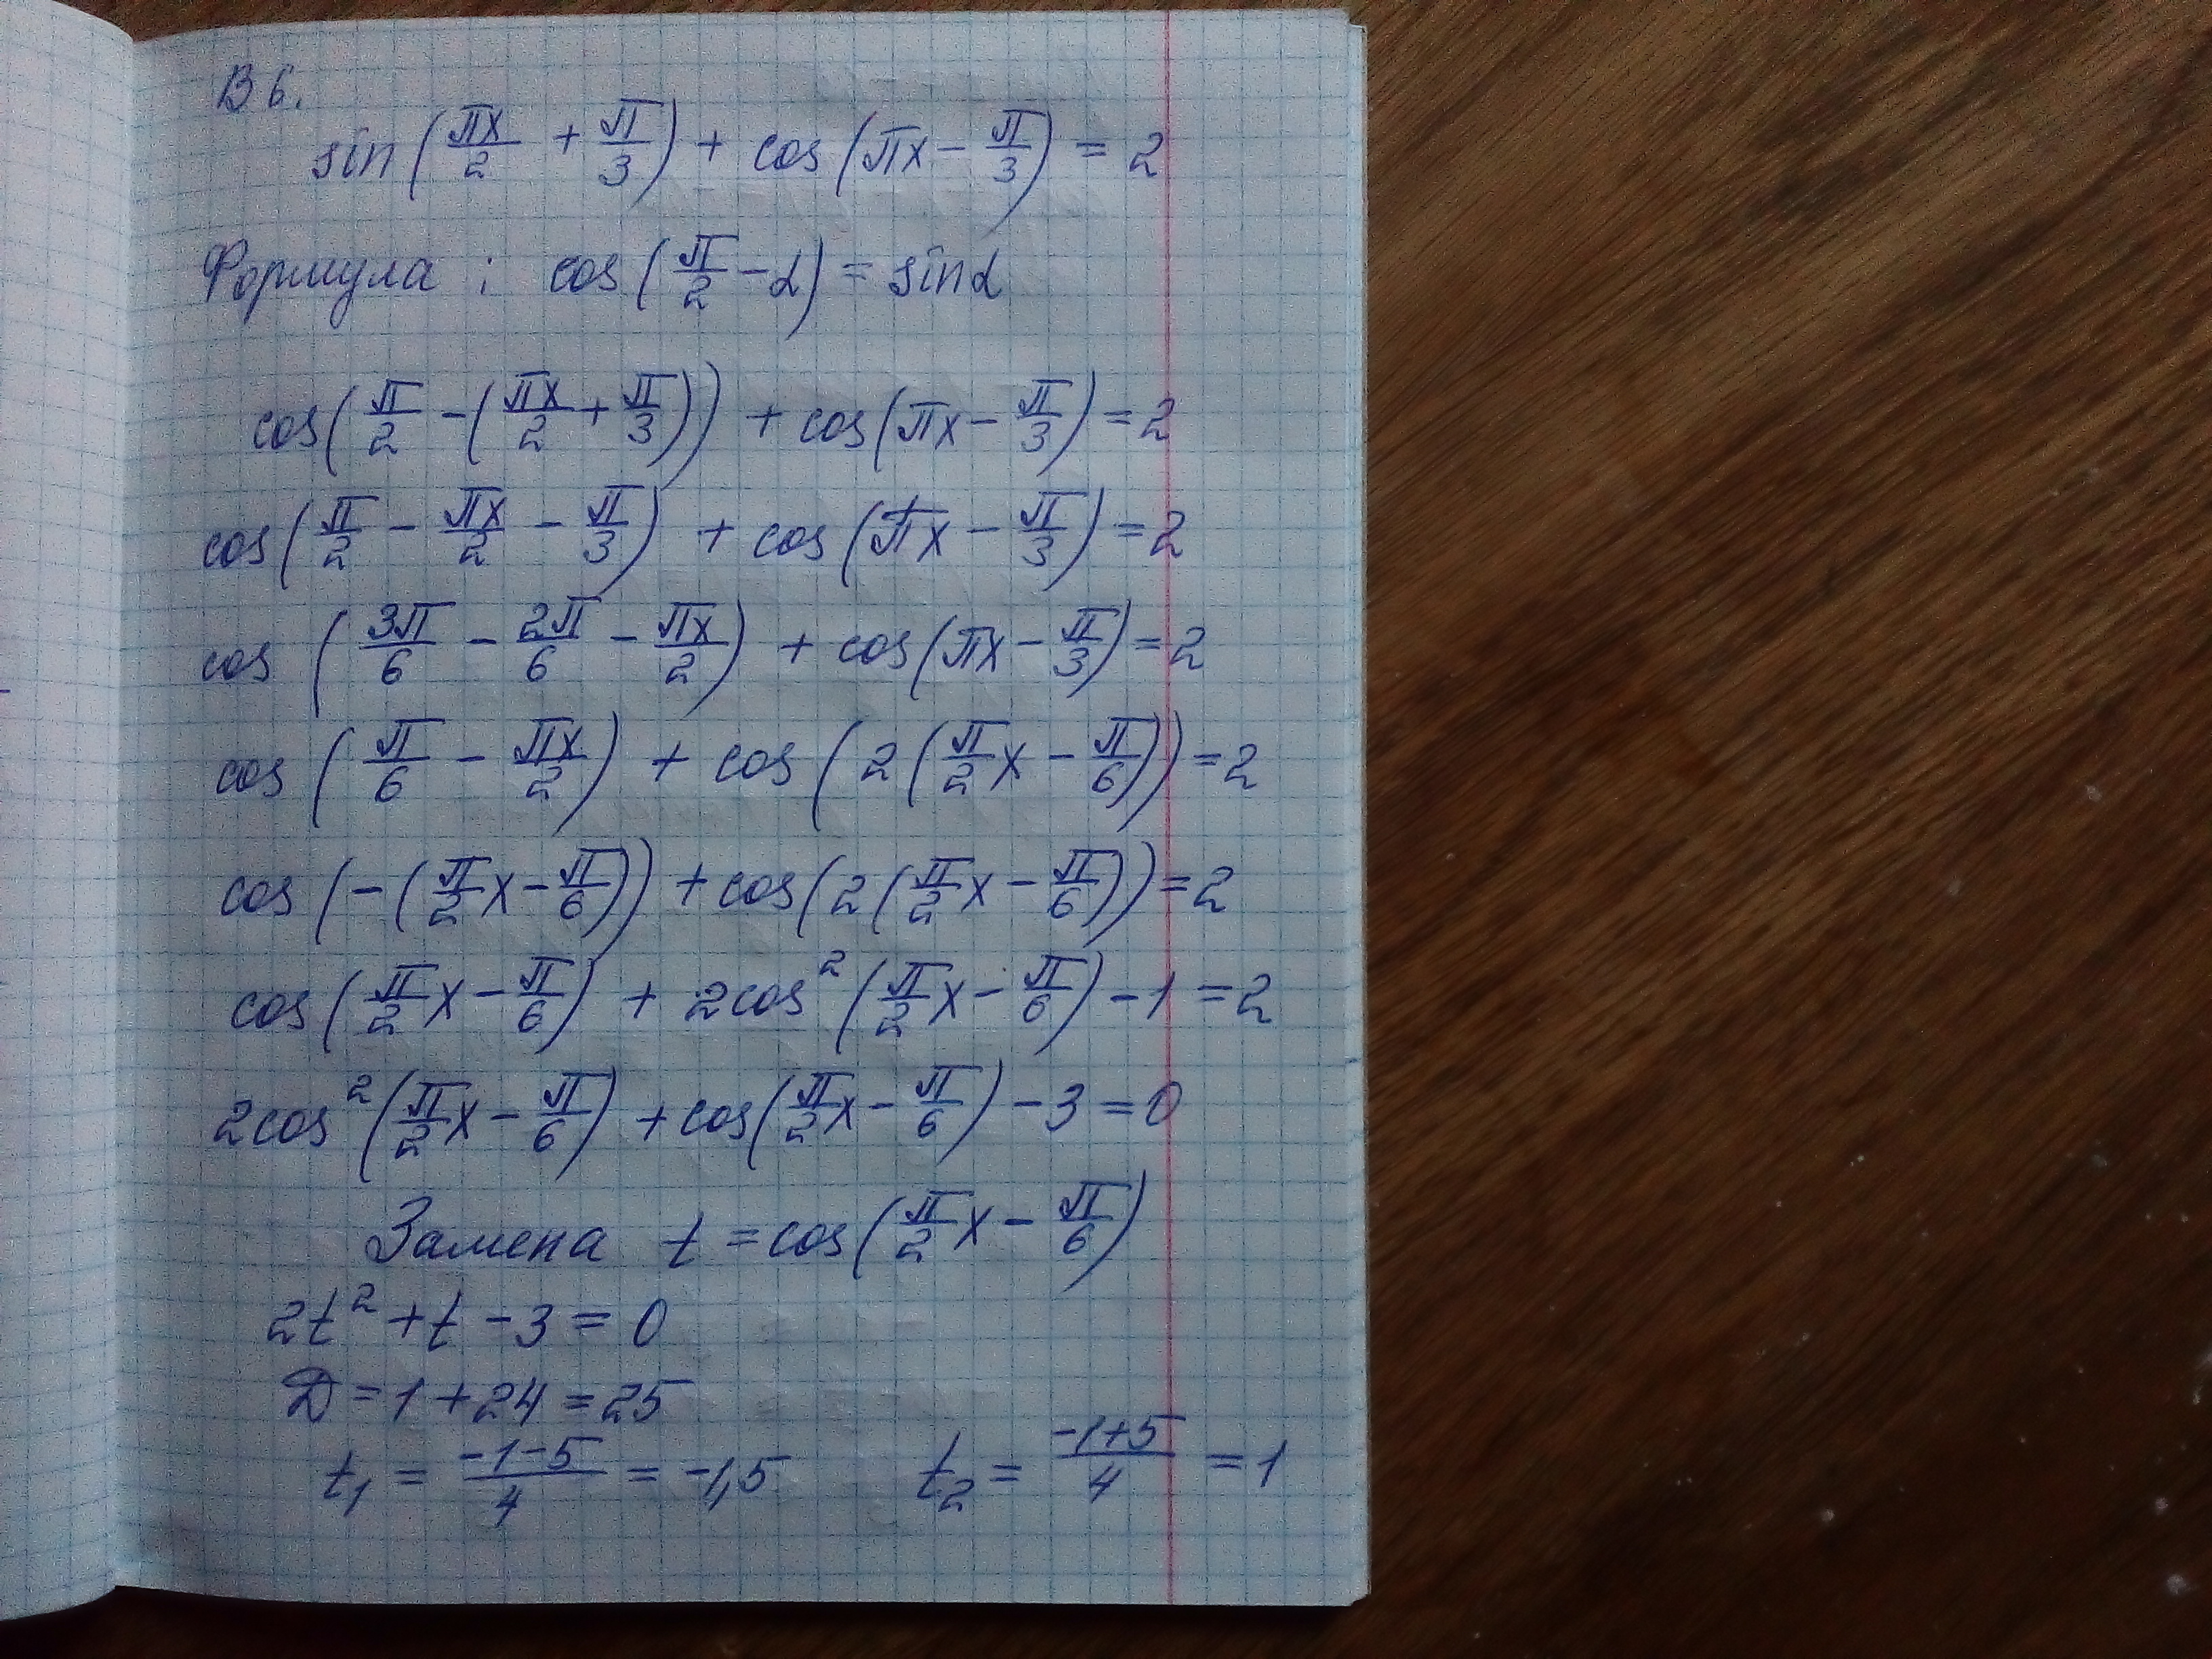 В 6.
sin(πx/2 + π/3) + cos(πx - π/3) = 2
Формула : cos(π/2 - α) = sinα
cos(π/2 - (πx/2 + π/3)) + cos(πx - π/3) = 2
cos(π/2 - πx/2 - π/3) + cos(πx - π/3) = 2
cos(3π/6 - 2π/6 - πx/2) + cos(πx - π/3) = 2
cos(π/6 - πx/2) + cos(2(π/2 x - π/6)) = 2
cos(-(π/2 x - π/6)) + cos(2(π/2 x - π/6)) = 2
cos(π/2 x - π/6) + 2cos²(π/2 x - π/6) - 1 = 2
2cos²(π/2 x - π/6) + cos(π/2 x - π/6) - 3 = 0
Замена t = cos(π/2 x - π/6)
2t² + t - 3 = 0
D = 1 + 24 = 25
t₁ = (-1-5)/4 = -1,5 t₂ = (-1+5)/4 = 1